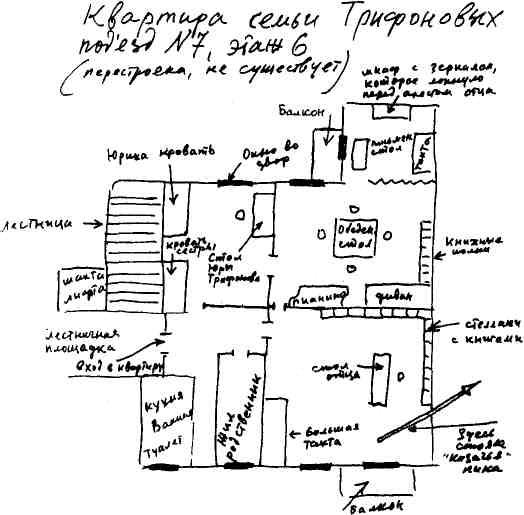 Квартира семьи Трифоновых
подъезд №7, этаж 6
(перестроена, не существует)
шкаф с зеркалом,
которое лопнуло
перед арестом отца
Балкон
письмен
стол
Тахта
Юрина кровать
Окно во
двор
лестница
кровать
сестры
Стол
Юры
Трифонова
Обеден.
стол
Книжные
полки
шахта
лифта
пианино
диван
стеллажи
с книгами
лестничная
площадка
Вход в квартиру
стол
отца
кухня
Ванная
туалет
Жил
родственник
Большая
тахта
Здесь
стояла
"Казачья"
пика
Балкон